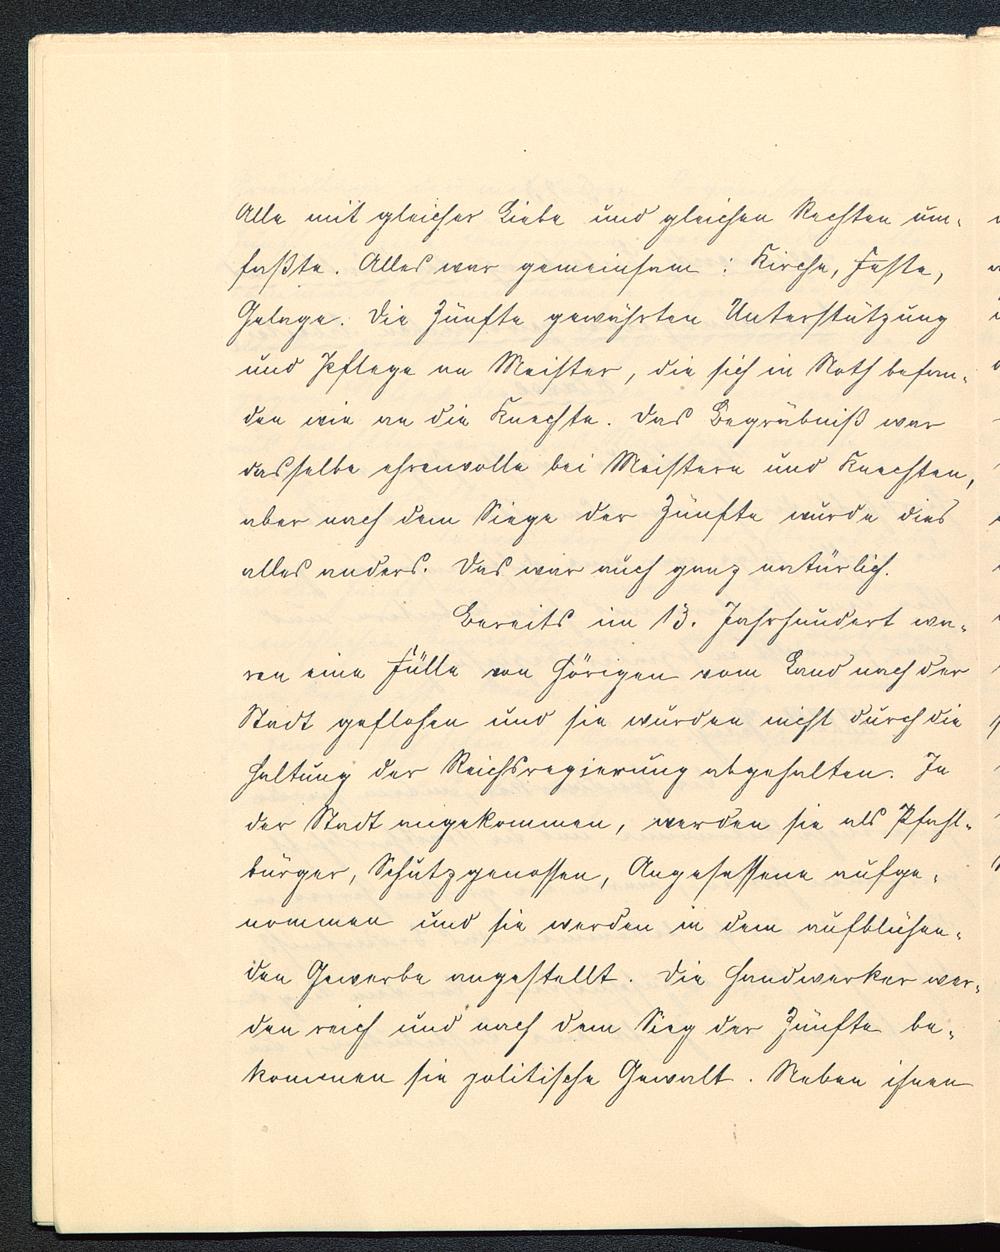 Alle mit gleicher Liebe und gleichen Rechten um-
faßte. Alles war gemeinsam: Kirche, Feste,
Gelage. Die Zünfte gewährten Unterstützung
und Pflege an Meister, die sich in Noth befan-
den wie an die Knechte. Das Begräbniß war
dasselbe ehrenvolle bei Meistern und Knechten,
aber nach dem Siege der Zünfte wurde dies
alles anders. Das war auch ganz natürlich.
Bereits im 13. Jahrhundert wa-
ren eine Fülle von Hörigen vom Land nach der
Stadt geflohen und sie wurden nicht durch die
Haltung der Reichsregierung abgehalten. In
der Stadt angekommen, werden sie als Pfahl-
bürger, Schutzgenossen, Angesessene aufge-
nommen und sie werden in dem aufblühen-
den Gewerbe angestellt. Die Handwerker wer-
den reich und nach dem Sieg der Zünfte be-
kommen sie politische Gewalt. Neben ihnen